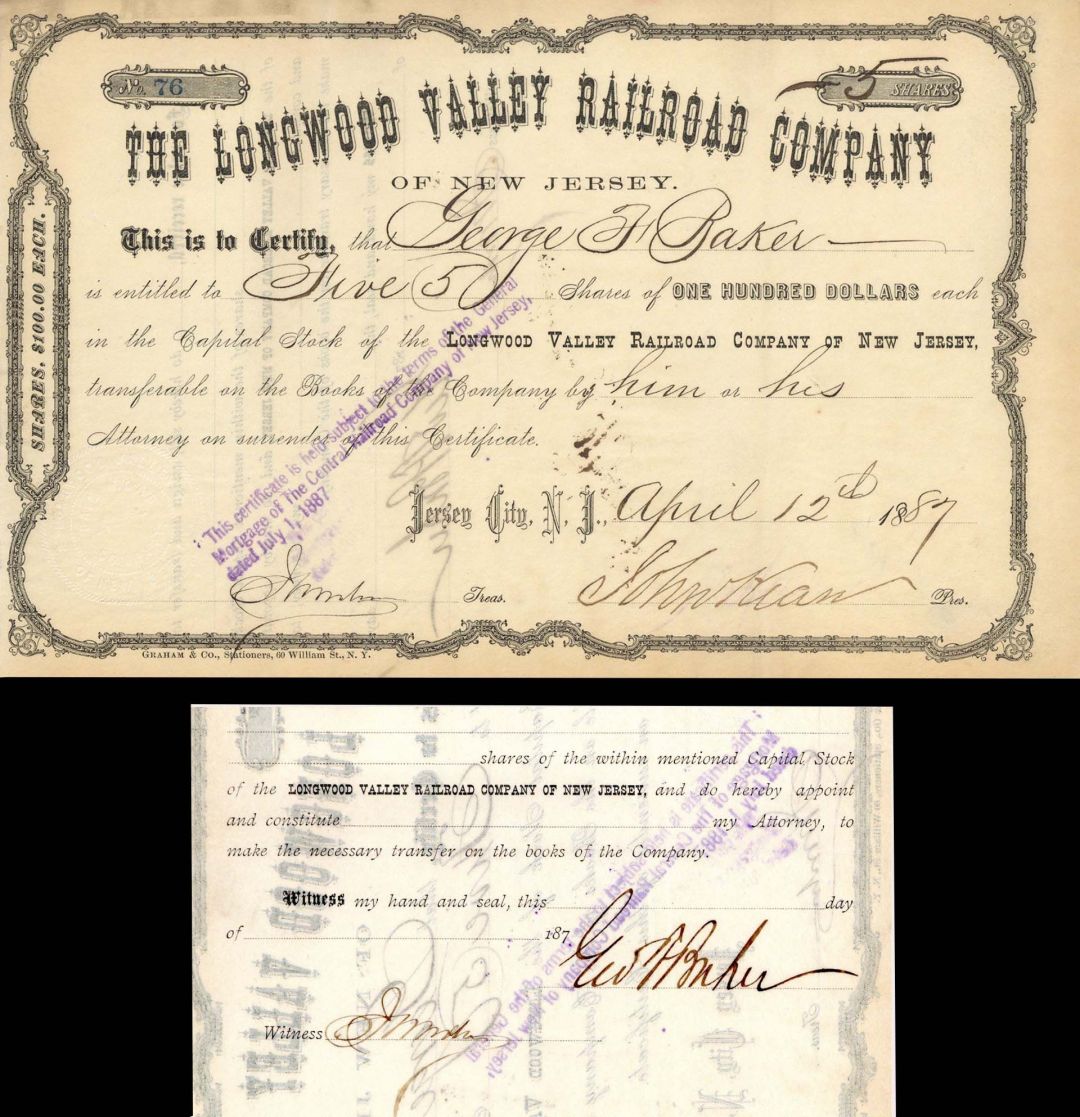 No. 76
5 SHARES
THE LONGWOOD VALLEY RAILROAD COMPANY
OF NEW JERSEY.
SHARES, $100.00 EACH.
This is to Certify, that George F Baker
is entitled to Five (5) Shares of ONE HUNDRED DOLLARS each
in the Capital Stock of the LONGWOOD VALLEY RAILROAD COMPANY OF NEW JERSEY,
transferable on the Books of the Company by him or his
Attorney on surrender of this Certificate.
Jersey City, N. J., April 12th 1887
This certificate is held subject to the terms of the General
Mortgage of The Central Railroad Company of New Jersey,
dated July 1, 1887
Treas.
John Kean Pres.
GRAHAM & Co., Stationers, 60 William St., N. Y.
shares of the within mentioned Capital Stock
of the LONGWOOD VALLEY RAILROAD COMPANY OF NEW JERSEY, and do hereby appoint
and constitute my Attorney, to
make the necessary transfer on the books of the Company.
Witness my hand and seal, this day
of 187
Geo F Baker
Witness